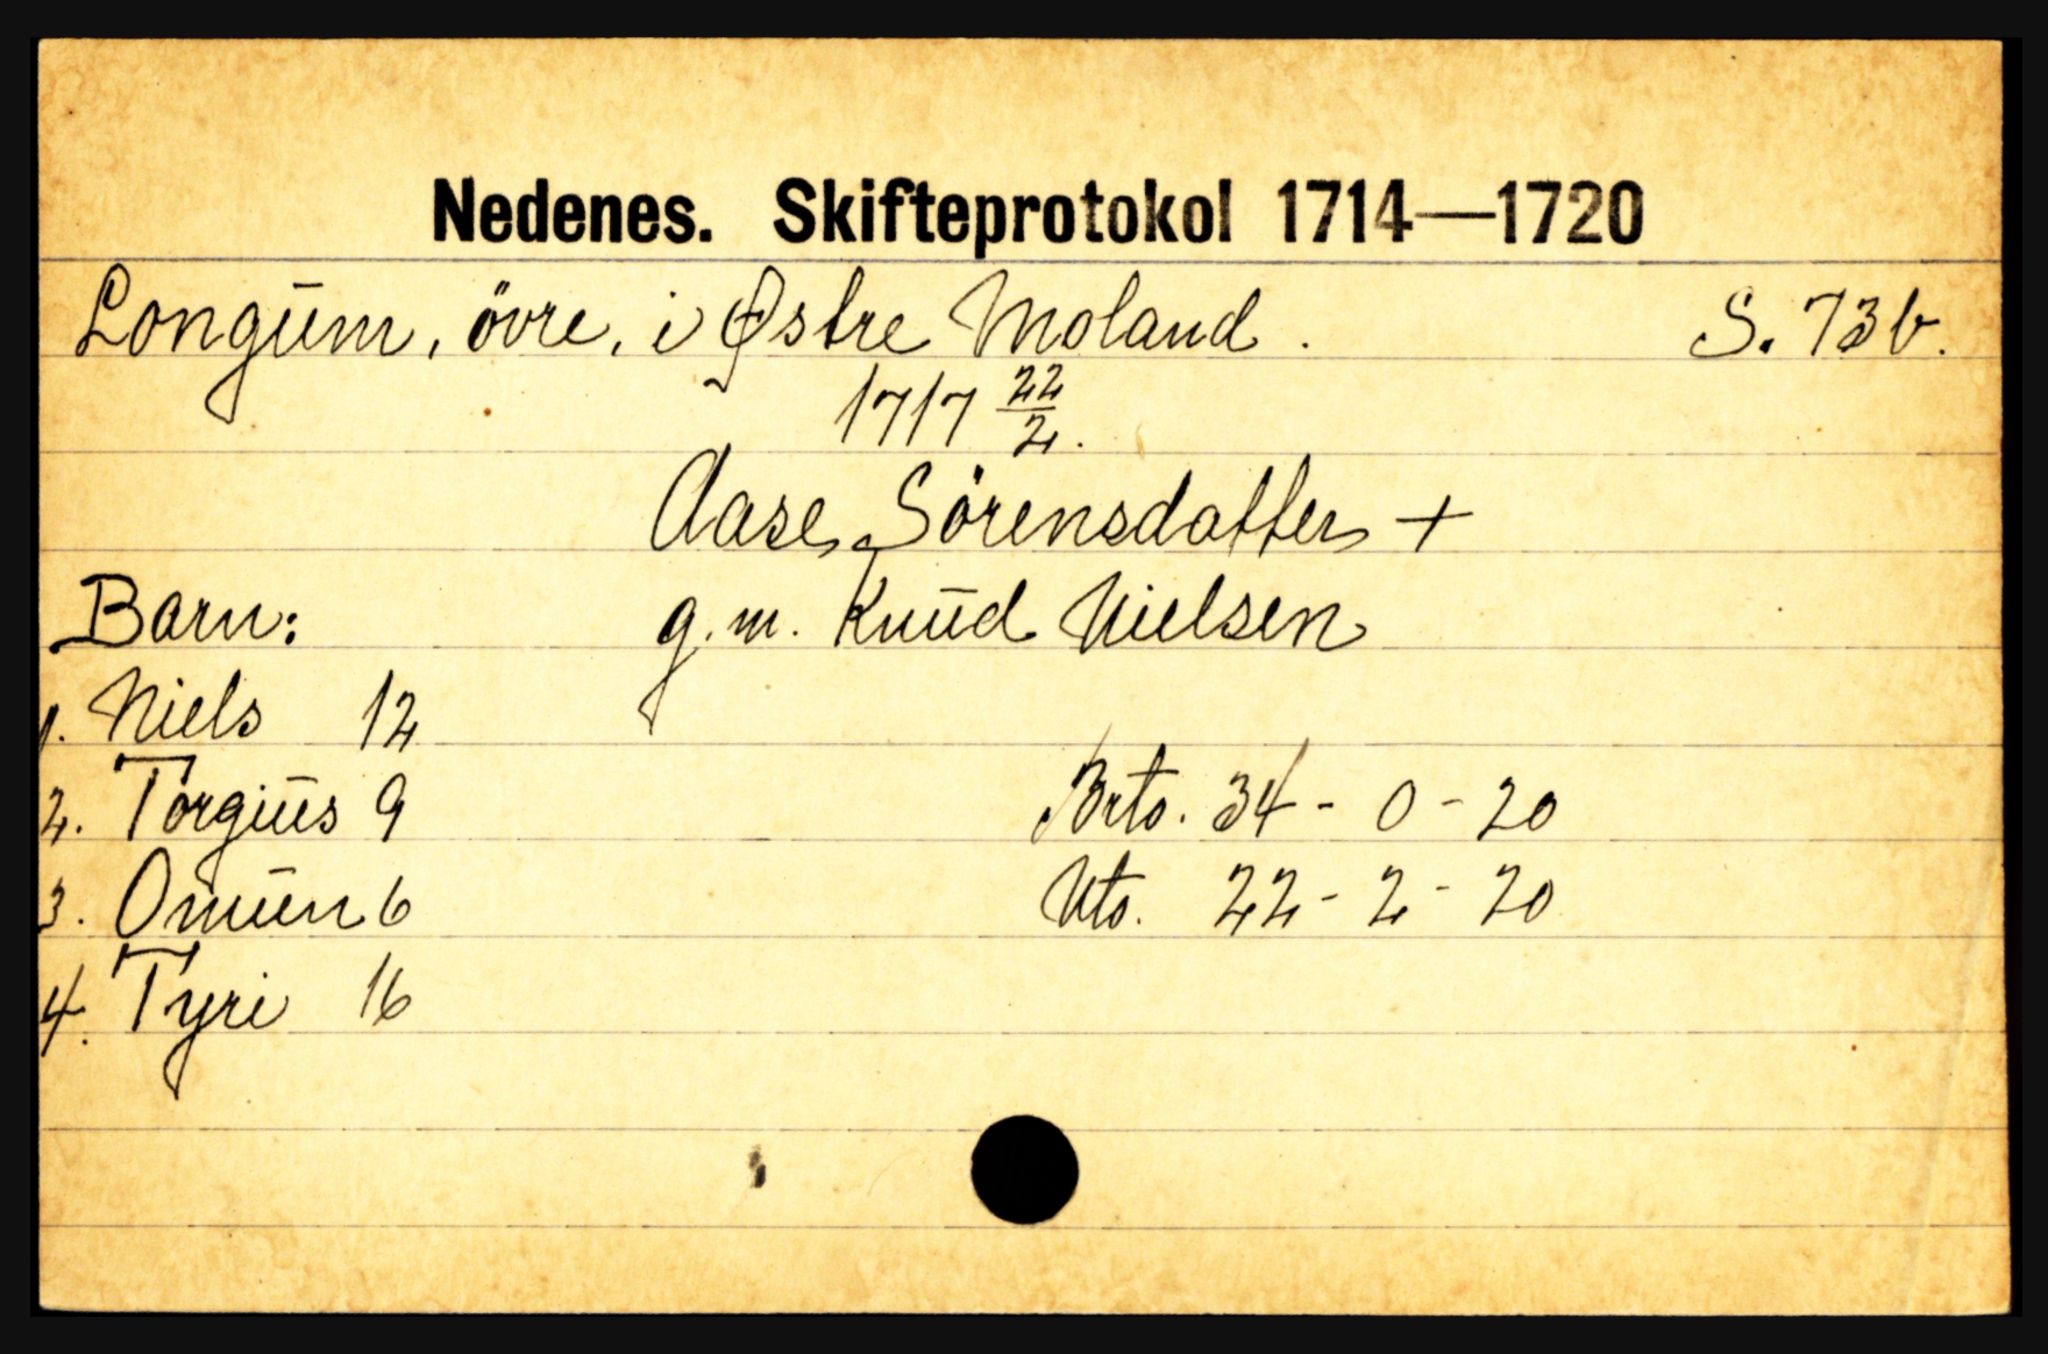 Nedenes. Skifteprotokol 1714—1720
Longum, övre, i Østre Moland. S. 73b.
1717 22/2.
Aase Sörensdatter +
Barn: g.m. Knud Nielsen
1. Niels 12
2. Torgius 9 Brto. 34 - 0 - 20
3. Omun 6 Nto. 22 - 2 - 20
4. Tyri 16